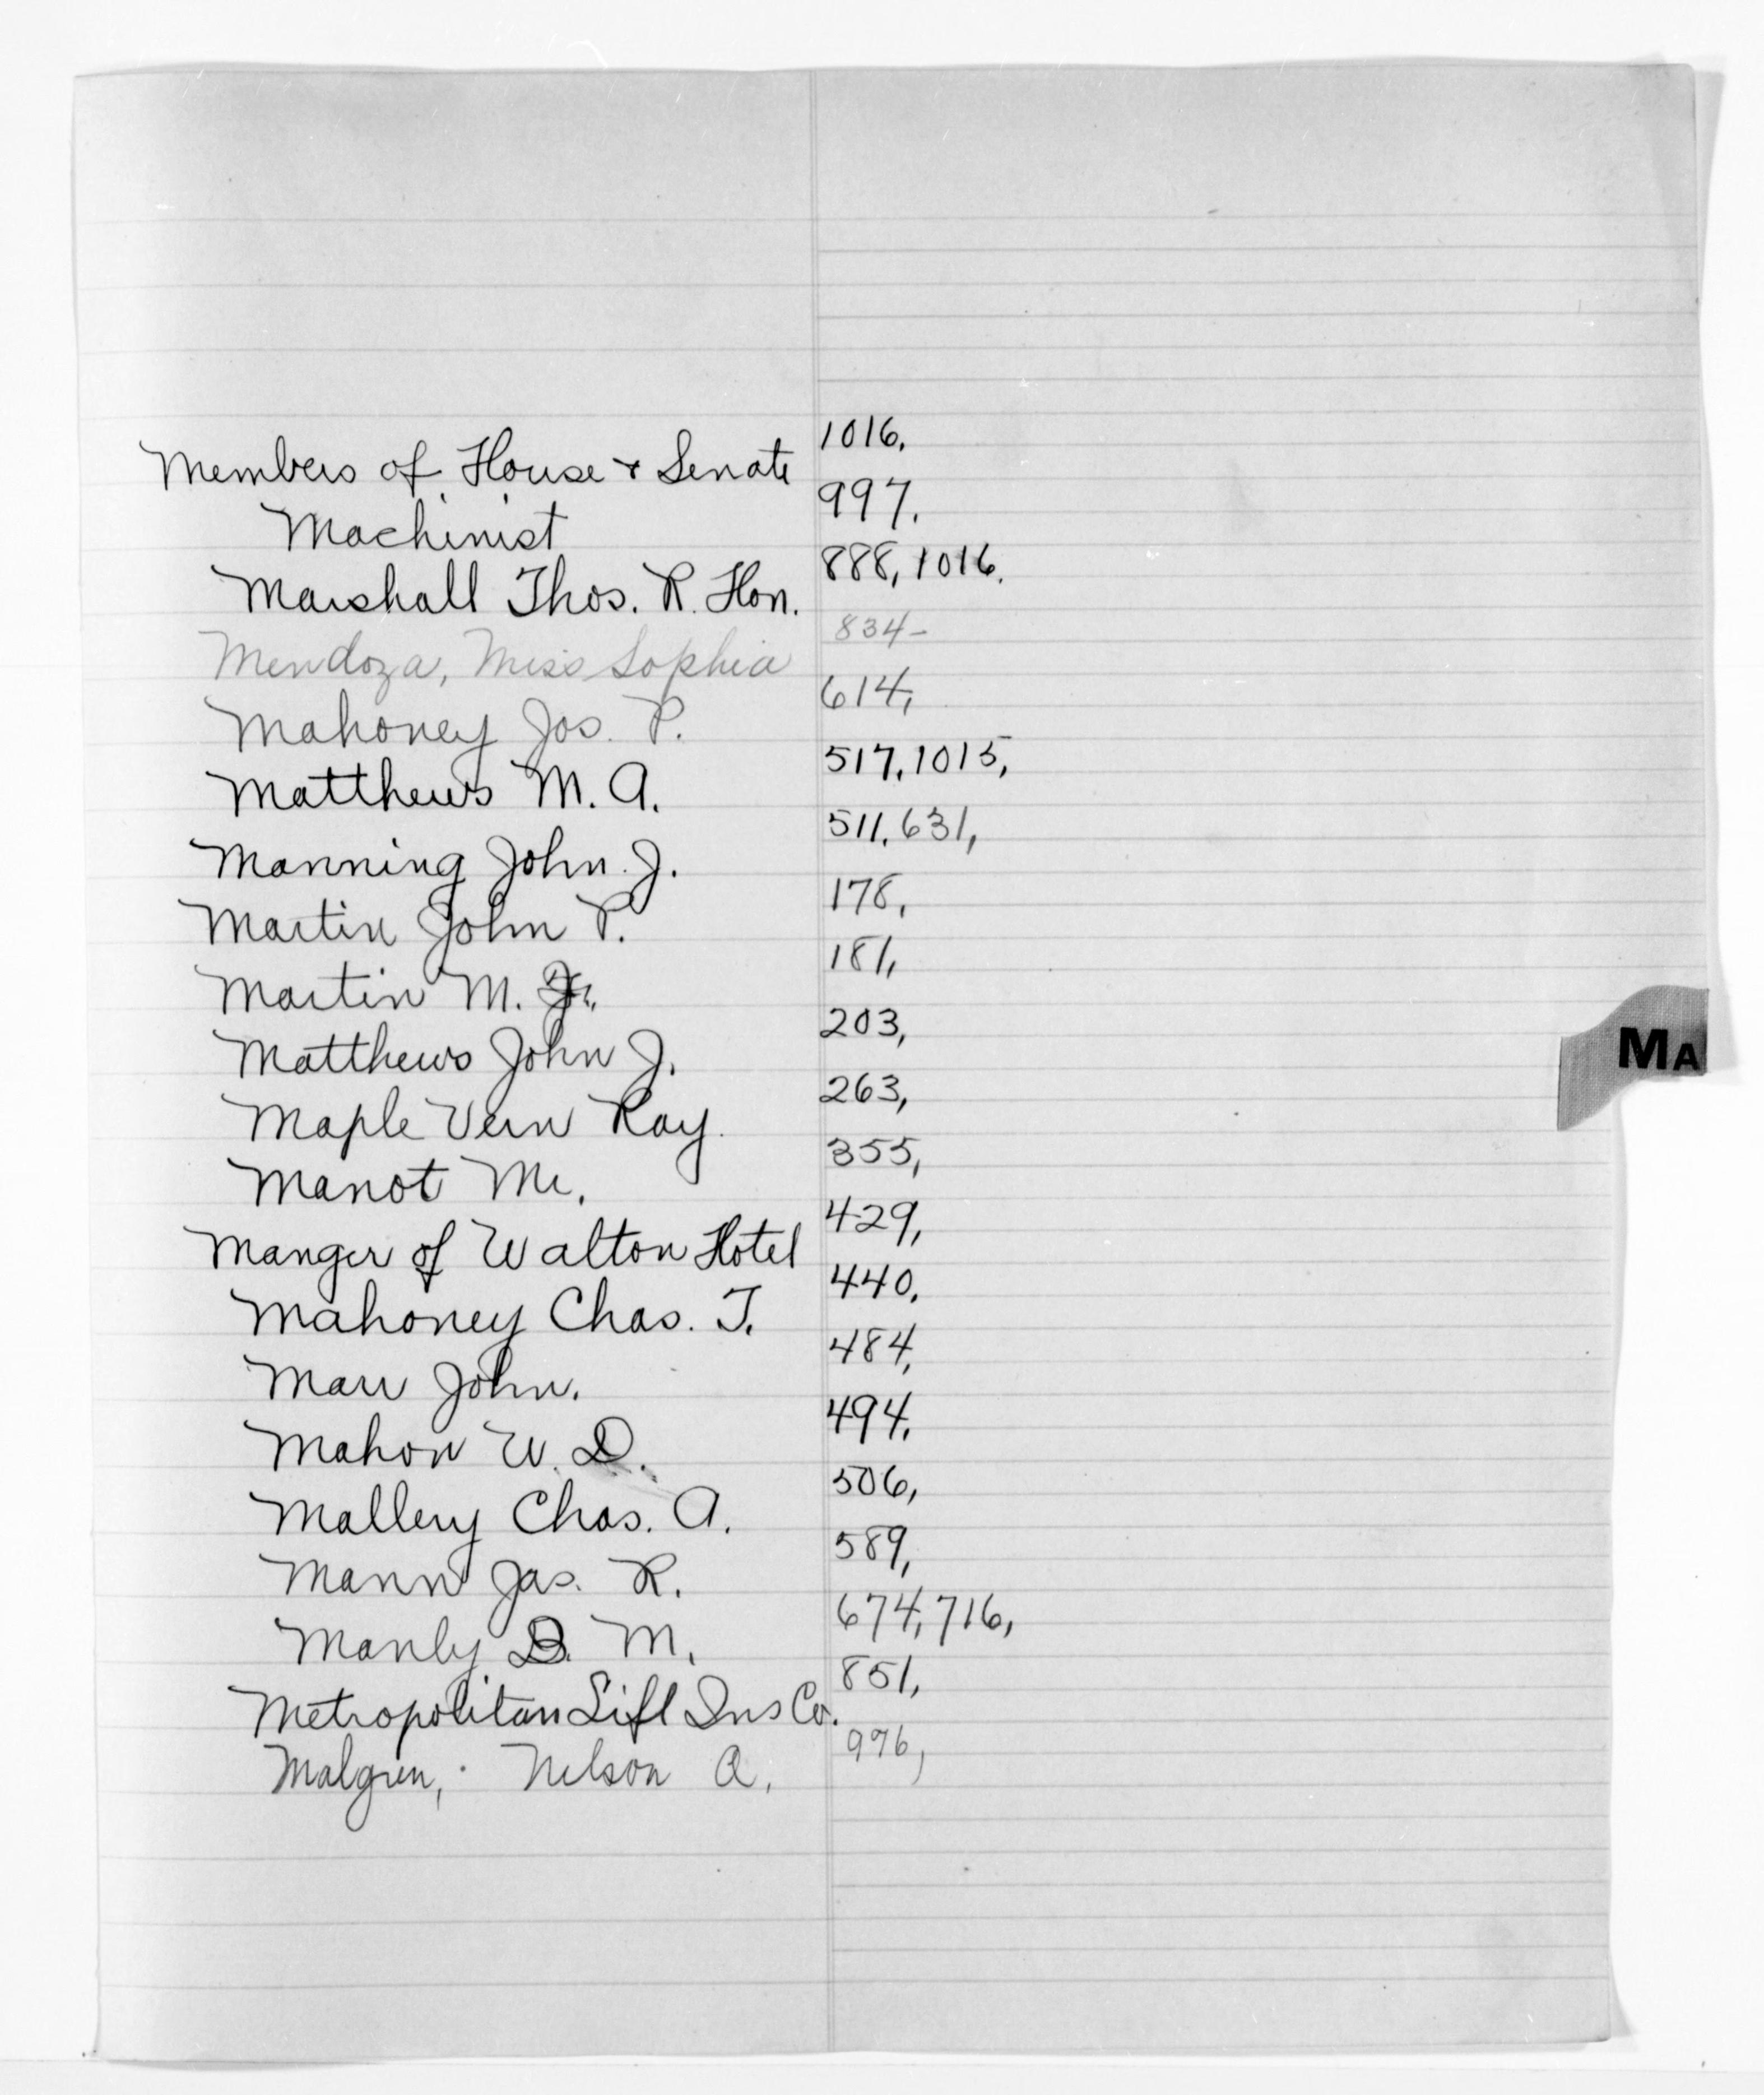 Members of House & Senate 1016.
Machinist 997.
Marshall Thos. R. Hon. 888, 1016.
Mendoza, Miss Sophia 834-
Mahoney Jos. P. 614,
Matthews M. A. 517, 1015,
Manning John J. 511, 631,
Martin John P. 178,
Martin M. 181,
Matthews John J. 203,
Maple Vern Ray. 263,
Manot Mr. 355,
Manger of Walton Hotel 429,
MA
Mahoney Chas. T. 440,
Marr John. 484,
Mahon W. D. 494,
Mallery Chas. A. 506,
Mann Jas. R. 589,
Manly B. M. 674, 716,
Metropolitan Life Ins Co. 851,
Malgren, Nelson A. 996,